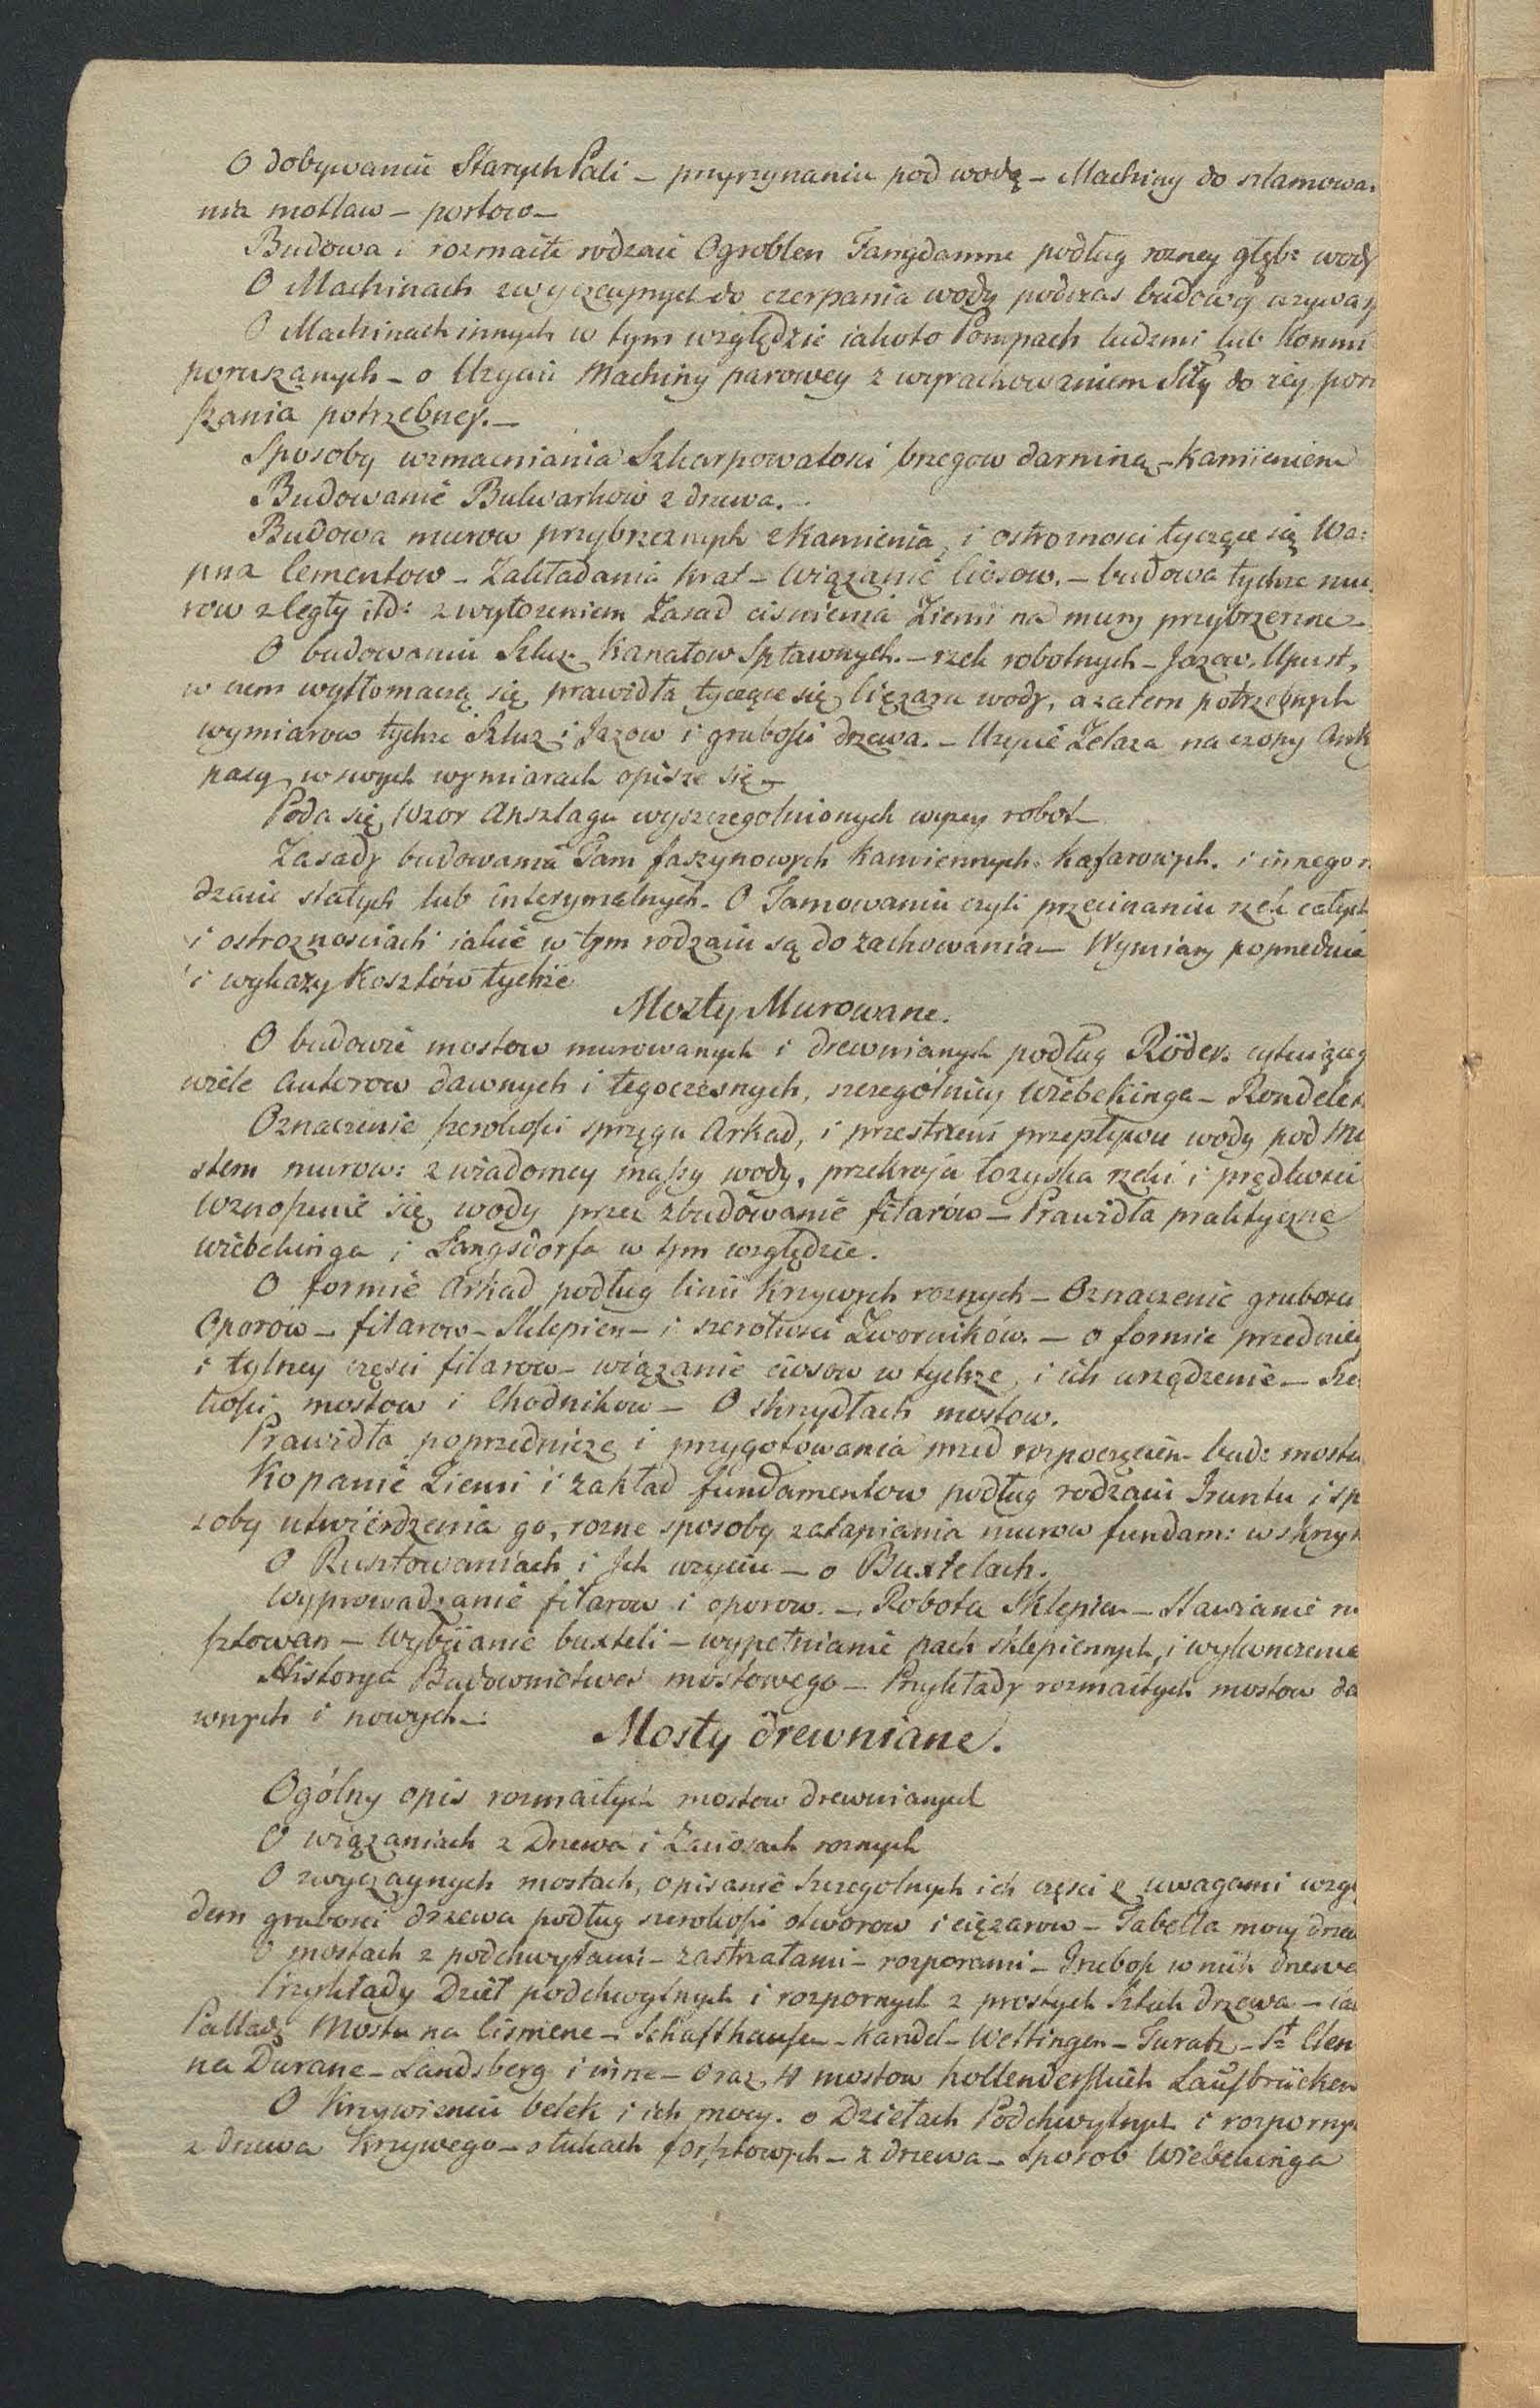 O dobywaniu Starych Pali – przyrzynaniu pod wodą – Machiny do szlamowa:
nia motlaw – portow –
Budowa i rozmaite rodzaie Ogroblen Fangdamme podług rozney głęb: wody
O Machinach zwyczaynych do czerpania wody podczas budowy uzywan
O Machinach innych w tym względzie iakoto Pompach ludzmi lub Konmi
poruszanych – o Uzyciu Machiny parowey z wyrachowaniem Siły do iey poru
szania potrzebney. –
Sposoby wzmacniania Szkarpowatosci brzegow darniną – Kamieniem
Budowanie Bulwarkow z drzewa. –
Budowa murow przybrzeznych z Kamienia, i ostroznosci tyczące się Wa:
pna Cementow – Zakładania Krat – Wiązanie Ciosow. – budowa tychze mu:
row z Cegły itd: z wyłozeniem Zasad cisnienia Ziemi na mury przybrzezne –
O budowaniu Szluz. Kanałow Spławnych. – rzek robotnych – Jazow, Upust,
w czem wytłomaczą się prawidła tyczące się Ciężaru wody, a zatem potrzebnych
wymiarow tychze Szluz i Jazow i grubości drzewa. – Uzycie Zelaza na czopy Ank
pasy w swych wymiarach opisze się –
Poda się Wzor Anszlagu wyszczegolnionych wyzey robot –
Zasady budowania Tam faszynowych Kamiennych. Kafarowych. i innego r
dzaiu stałych lub interymalnych. O Tamowaniu czyli przecinaniu rzek całych
i ostroznosciach iakie w tym rodzaiu są do zachowania – Wymiary poprzednie
i wykazy Kosztów tychże
Mosty Murowane.
O budowie mostow murowanych i drewnianych podług Röder. cytuiąceg
wiele Autorow dawnych i tegoczesnych, szczególniey Wiebekinga – Rondelet
Oznaczenie szerokości sprzęgu Arkad, i przestrzeni przepływu wody pod Mo
stem murow: z wiadomey massy wody, przekroju łozyska rzeki i prędkości
Wznoszenie się wody przez zbudowanie filarów – Prawidła praktyczne
Wiebekinga i Langsdorfa w tym względzie.
O formie Arkad podług linii Krzywych roznych – Oznaczenie grubosci
Oporow – filarow – Sklepien – i szerokości Zworników. – o formie przedniey
i tylney części filarow – wiązanie ciosow w tychze, i ich urządzenie – Sze:
kości mostow i Chodnikow – O skrzydłach mostow.
Prawidła poprzednicze i przygotowania przed rozpoczęciem bud: mostu
Kopanie Ziemi i zakład fundamentow podług rodzaiu Gruntu i sp
soby utwierdzenia go, rozne sposoby zatapiania murow fundam: w skrzyn
O Rusztowaniach i Ich uzyciu – o Buxtelach.
Wyprowadzanie filarow i oporow. – Robota Sklepien – Stawianie ru
sztowan – Wybiianie buxteli – wypełnianie pach sklepiennych, i wykonczenie
Historya Budownictwa mostowego – Przykłady rozmaitych mostow da
wnych i nowych –:
Mosty drewniane.
Ogólny opis rozmaitych mostow drewnianych
O wiązaniach z Drzewa i Zaciosach roznych
O zwyczaynych mostach, opisanie szczegolnych ich części z uwagami wzgl
dem grubości drzewa podług szerokości otworow i ciężarow – Tabella mocy drzew
O mostach z podchwytami – zastrzałami – rozporami – Grubość w nich drzewa
Przykłady Dzieł podchwytnych i rozpornych z prostych Sztuk drzewa – iak
Pallady Mostu na Cismone – Schaffhausen – Kandel – Wettingen – – St Clen
na Durane – Landsberg i inne – Oraz 4 mostow hollenderskich Laufbrücken
O Krzywieniu belek i ich mocy. o Dziełach Podchwytnych i rozpornych
z drzewa Krzywego – o łukach forsztowych – z drzewa – sposob Wiebekinga